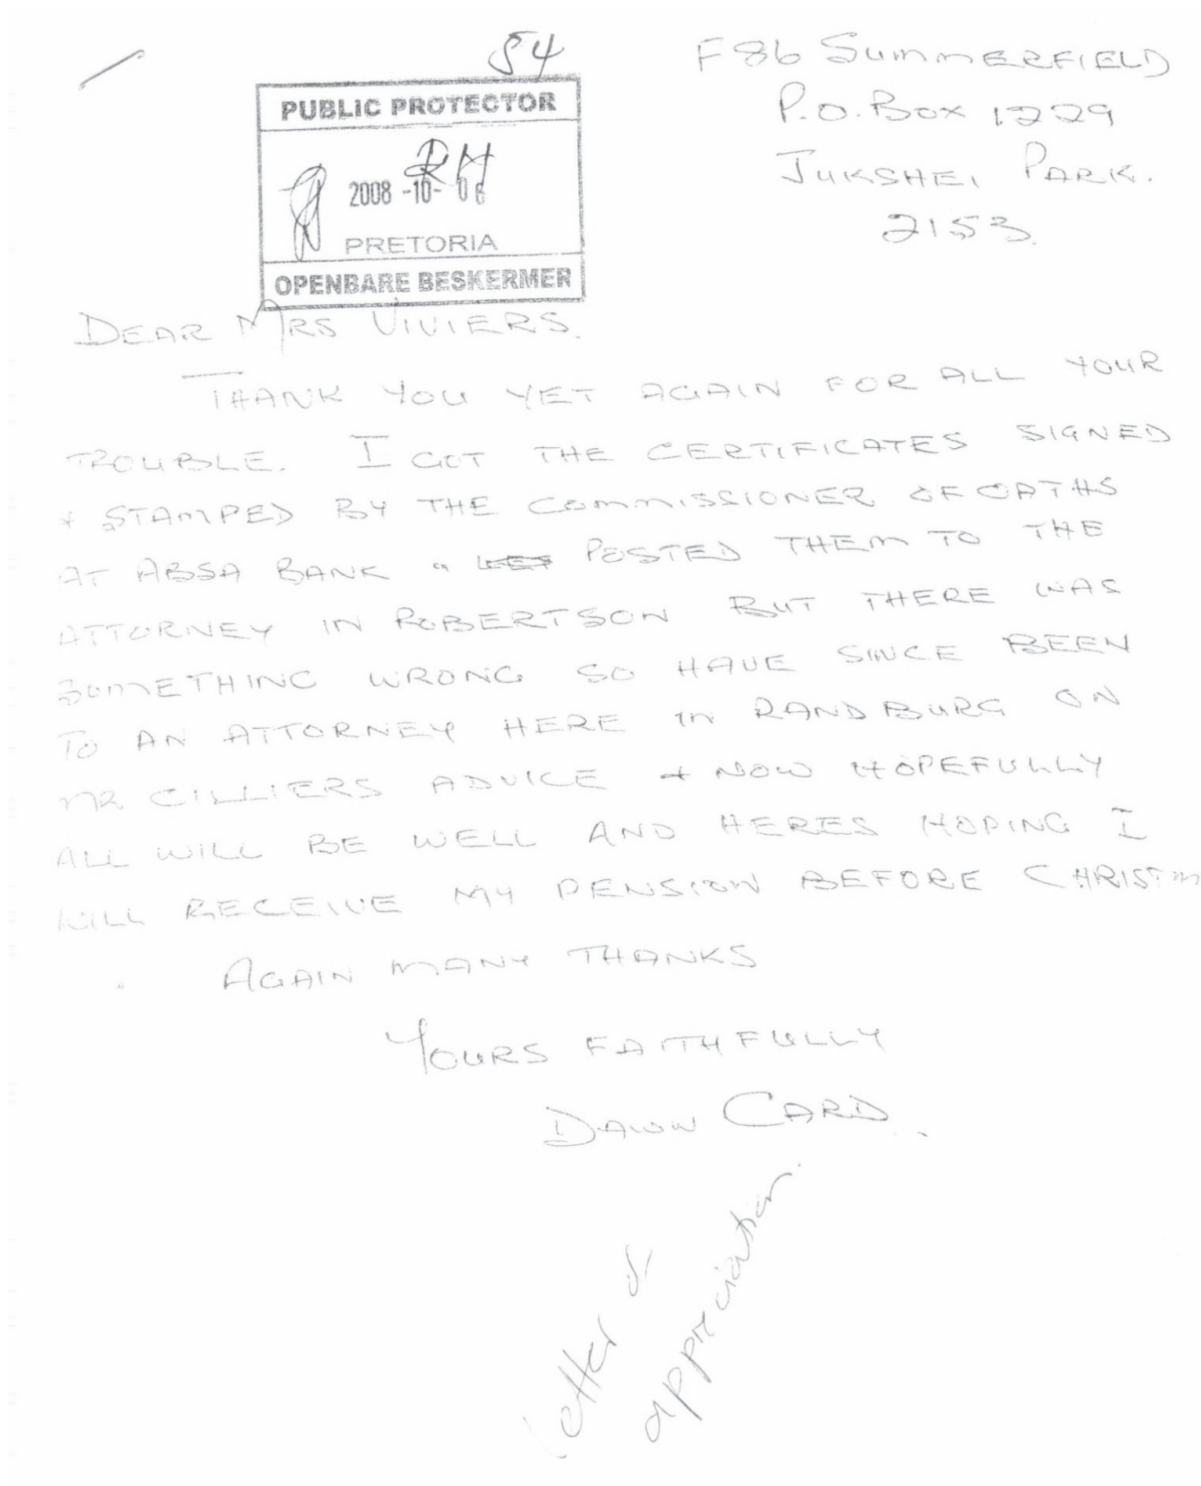 54
F86 SUMMERFIELD
P.O. BOX 1229
JUKSHEI PARK.
2153.
PUBLIC PROTECTOR
RH
2008 -10- 06
PRETORIA
OPENBARE BESKERMER
DEAR MRS VIVIERS.
THANK YOU YET AGAIN FOR ALL YOUR
TROUBLE. I GOT THE CERTIFICATES SIGNED
+ STAMPED BY THE COMMISSIONER OF OATHS
AT ABSA BANK POSTED THEM TO THE
ATTORNEY IN ROBERTSON BUT THERE WAS
SOMETHING WRONG SO HAVE SINCE BEEN
TO AN ATTORNEY HERE IN RANDBURG ON
MR CILLIERS ADVICE + NOW HOPEFULLY
ALL WILL BE WELL AND HERES HOPING I
WILL RECEIVE MY PENSION BEFORE CHRISTM
AGAIN MANY THANKS
YOURS FAITHFULLY
DAWN CARD.
Letter of
appreciation.